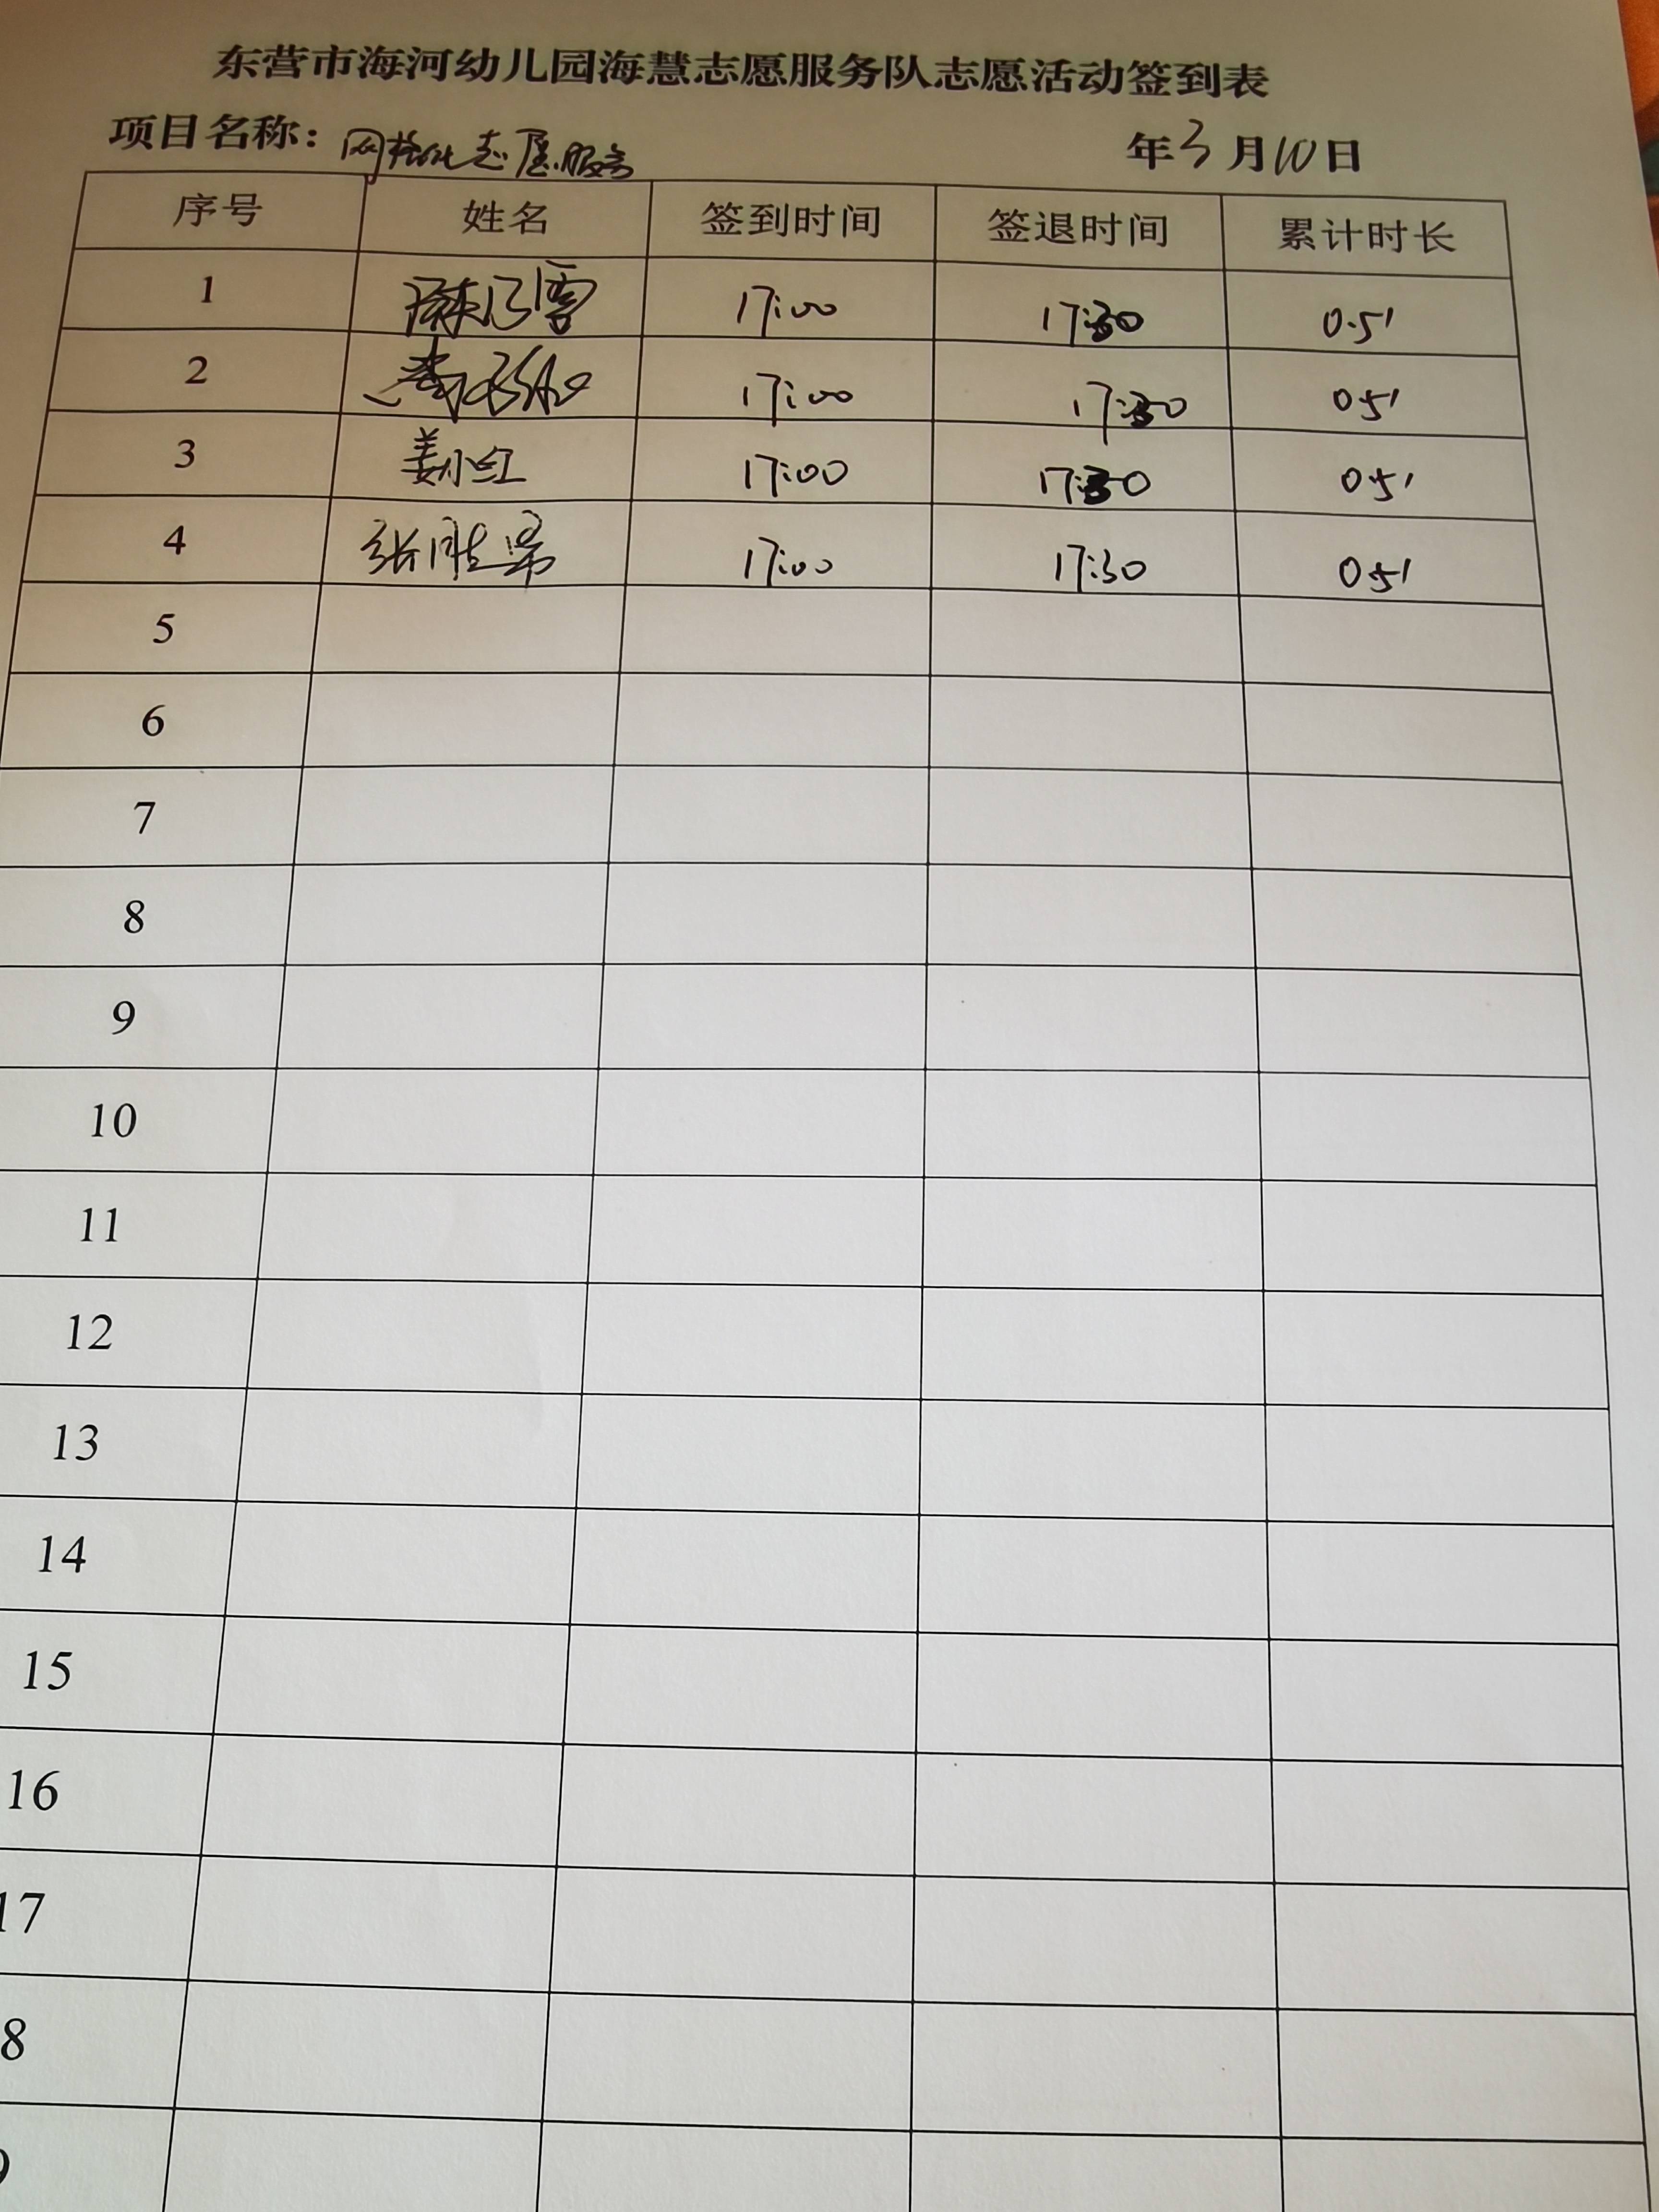 东营市海河幼儿园海慧志愿服务队志愿活动签到表
项目名称：网格化志愿服务 年3月10日
序号 姓名 签到时间 签退时间 累计时长
1 17:00 17:30 0.5'
2 17:00 17:30 0.5'
3 姜小红 17:00 17:30 0.5'
4 17:00 17:30 0.5'
5
6
7
8
9
10
11
12
13
14
15
16
17
8
9